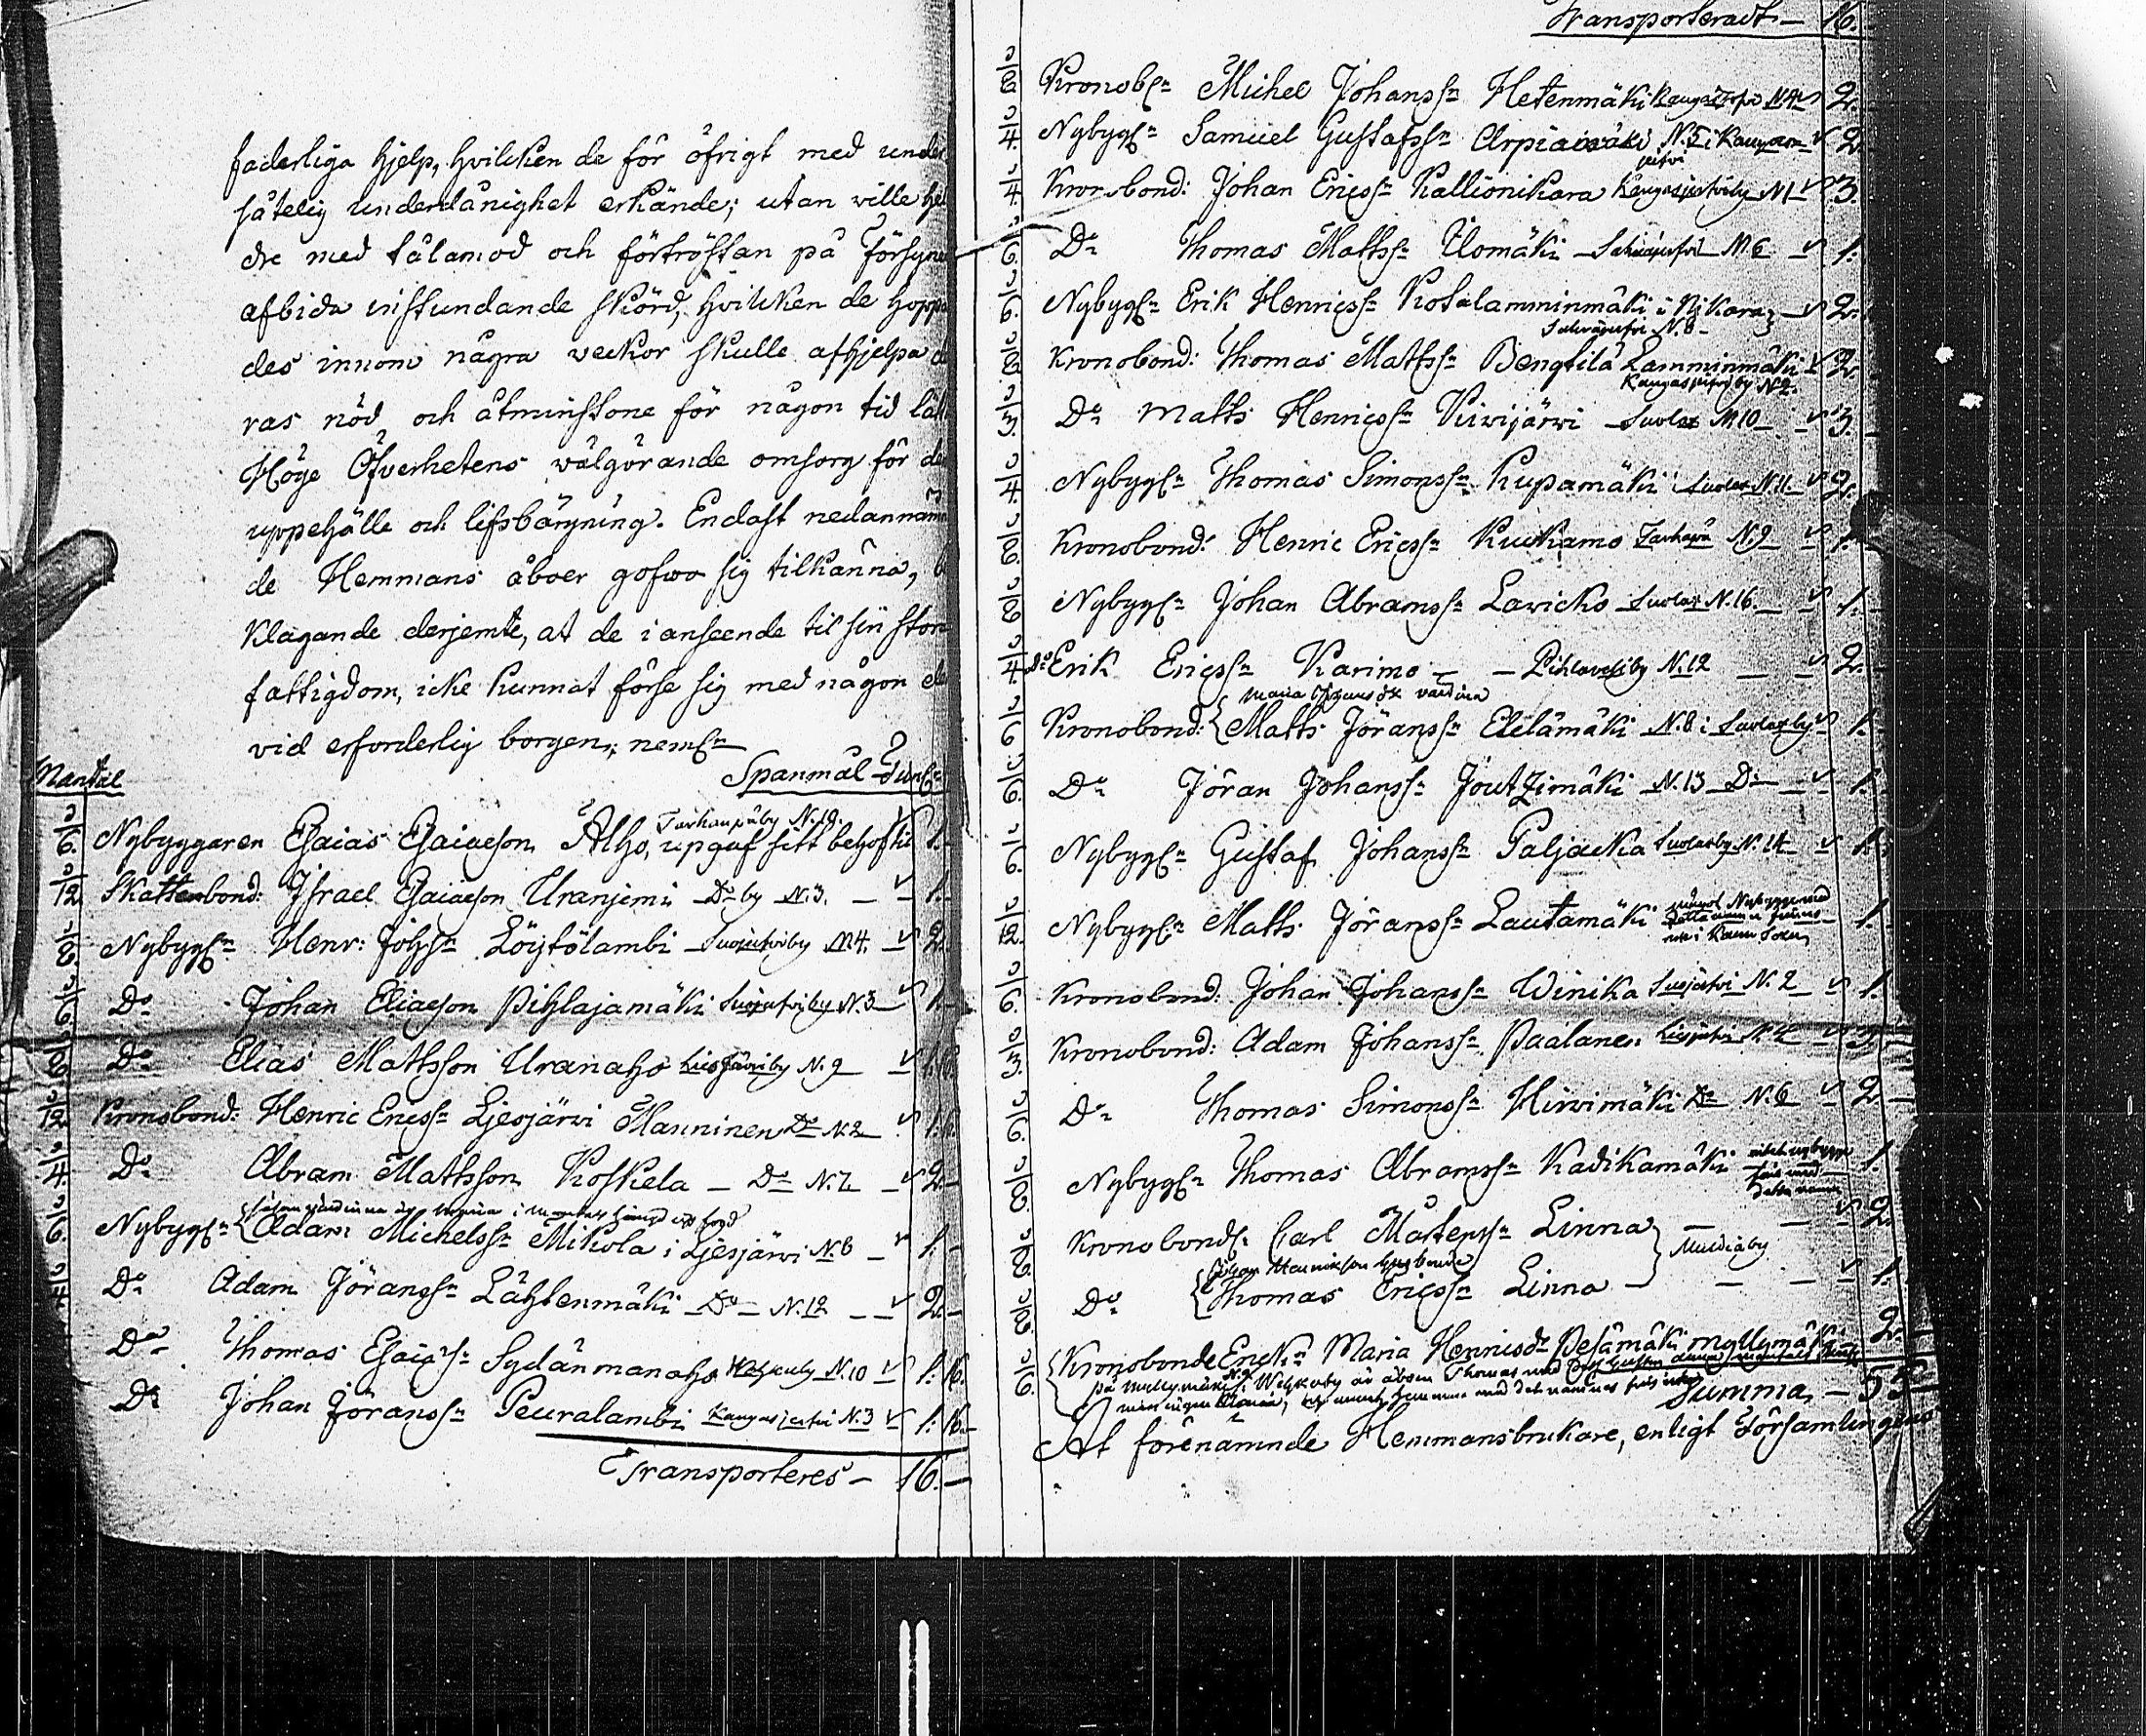 faderliga hjelp, hvilcken de för öfrigt med under
såtelig underdånighet erkände; utan wille hel
dre med tålamod och förtröstan på Försyne
afbida instundande skörd, hvilcken de hoppa
des innom några veckor skulle afhjelpa de
ras nöd och åtminstone för någon tid lät
Höga Öfverhetens wälgörande omsorg för de
uppehälle och lifsbärgning. Endast nedannäm
de Hemmans åboer gofwo sig tilkänna, b
klagande derjemte, at de i anseende til sin stor
fattigdom, icke kunnat förse sig med någon de
vid erforderlig borgen; neml:n
Mantal Spanmål Tun
1/6. Nybyggaren Esaias Esaiaeson Alho, upgaf sitt behof til 1.
Tarhanpäby N. 19.
1/12 Skattebond: Israel Esaiaeson Uranjemi D:o by N. 3. 1.
1/8 Nybygg:n Henr: Johss:n Löytölambi N 4. 2.
1/6. D:o Johan Eliaeson Pihlajamäki N. 3 1.
1/8 D:o Elias Mattsson Uranaho Liesjärviby N. 9 1. 16.
1/12 Kronobond: Henric Ericss:n Ljesjärvi Manninen D:o N. 2 1.
1/4 D:o Abram Mattsson Koskela D:o N. 7 2.
1/6 Nybygg:n Adam Michelss:n Mikola i Ljesjärvi N. 8 1.
1/4 D:o Adam Jöranss:n Lähtenmäki D:o N. 12 2.
D:o Thomas Esaiass:n Sydänmanaho N. 10 1. 16.
D:o Johan Jöranss:n Peuralambi Kangasjerfvi N. 3 1. 16.
Transporteres 16.
Transporteradt 16.
1/8 Kronob:n Michel Johanss:n Hetenmäki N. 4 2.
1/4. Nybygg:n Samuel Gustafss:n Arpiaismäki N. 5 i Kangas 2.
jerfvi
1/4 Kronobond: Johan Ericss:n Kallionikara Kangasjerfviby N 1 3.
1/6. D:o Thomas Mattss:n Ulomäki N. 6 1.
1/6. Nybygg:n Erik Henricss:n Kotalamminmäki i Nikara 2.
N. 8
1/8 Kronobond: Thomas Mattss:n Bengtilä Lamminmäki 2.
Kangasjerfviby N 2.
1/3. D:o Matts Henricss:n Kivijärvi Suolax N 10 3.
1/4. Nybygg:n Thomas Simonss:n Kupamäki Suolax N. 11. 2.
1/8. Kronobond: Henric Ericss:n Kuckamo N. 9 1.
1/8 Nybygg:n Johan Abramss:n Lavicko Suolax N. 16. 1.
1/4 D:o Erik Ericss:n Karimo N. 12 2.
1/6 Kronobond: Matts Jöranss:n Etelämäki N. 8 i Suolaxby 1.
1/6. D:o Jöran Johanss:n Joutzimäki N. 13 D:o 1.
1/6. Nybygg:n Gustaf Johanss:n Paljacka Suolaxby N. 14 1.
1/12. Nybygg:n Matts Jöranss:n Lautamäki 1.
1/6. Kronobond: Johan Johanss:n Winika N. 2 1.
1/3. Kronobond: Adam Johanss:n Paalanen 3.
1/6. D:o Thomas Simonss:n Hirvimäki D:o N. 6 2.
1/8. Nybygg:n Thomas Abramss:n Kadikamäki 1.
1/8. Kronobond: Carl Mårtenss:n Linna 2.
1/8 D:o Thomas Ericss:n Linna 1.
1/6. Kronobonde Enck:n Maria Henricsd:r Pesämäki myllymäki 2.
Summa
At förenämnde Hemmansbrukare, enligt Församlingens